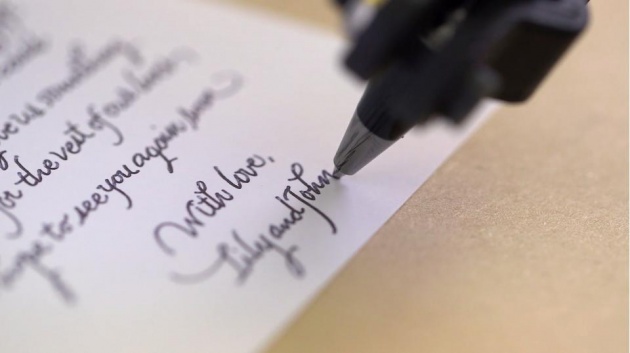 us something
for the rest of our lives.
hope to see you again soon
With love,
Lily and John